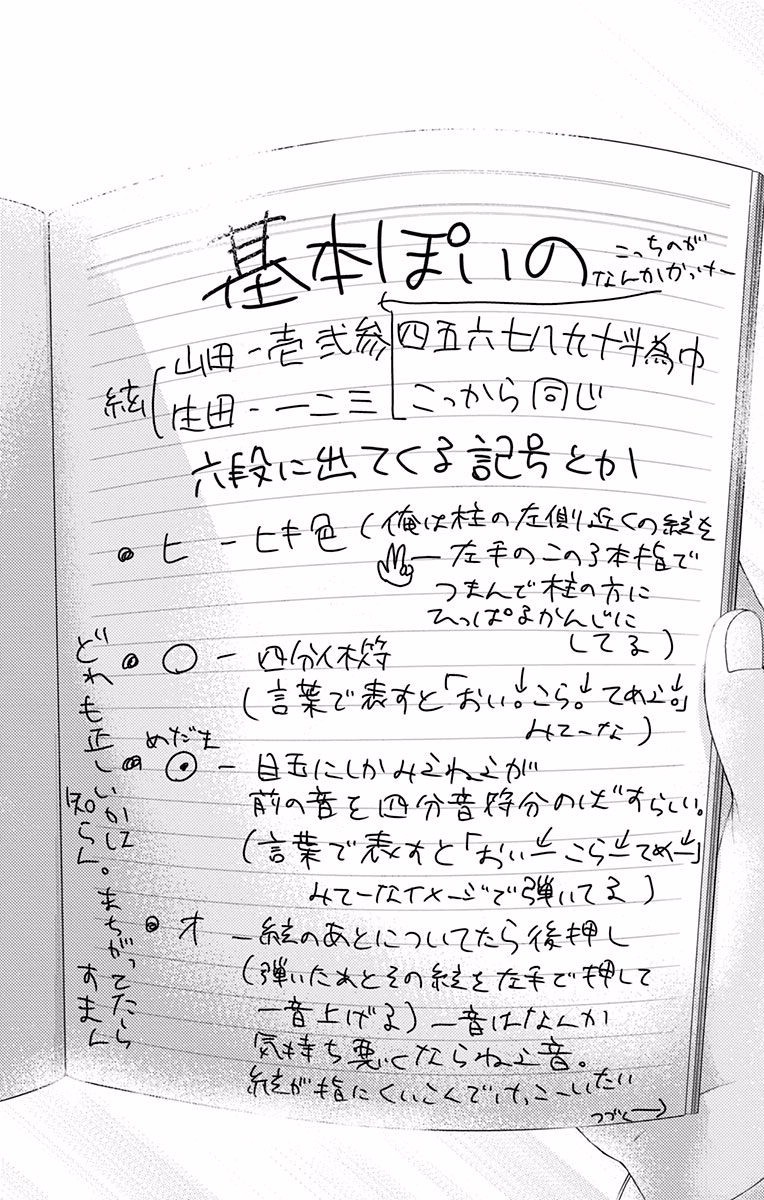 基本ぽいの
こっちのが
なんかかっけー
絃
山田-壱弐参
四五六七八九十斗為巾
生田-一二三
こっから同じ
六段に出てくる記号とか
・ヒ-ヒキ色(俺は柱の左側近くの絃を
-左手のこの3本指で
つまんで柱の方に
ひっぱるかんじに
してる)
・○-四分休符
(言葉で表すと「おい。↓こら。↓てめえ。↓」
みてーな)
めだま
・⊙-目玉にしかみえねえが
前の音を四分音符分のばすらしい。
(言葉で表すと「おい―こら―てめ―」
みてーなイメージで弾いてる)
・オ-絃のあとについてたら後押し
(弾いたあとその絃を左手で押して
一音上げる)一音はなんか
気持ち悪くならねえ音。
絃が指にくいこんでけっこーいたい
つづく→
どれも正しいかして
知らん。まちがってたら
すまん